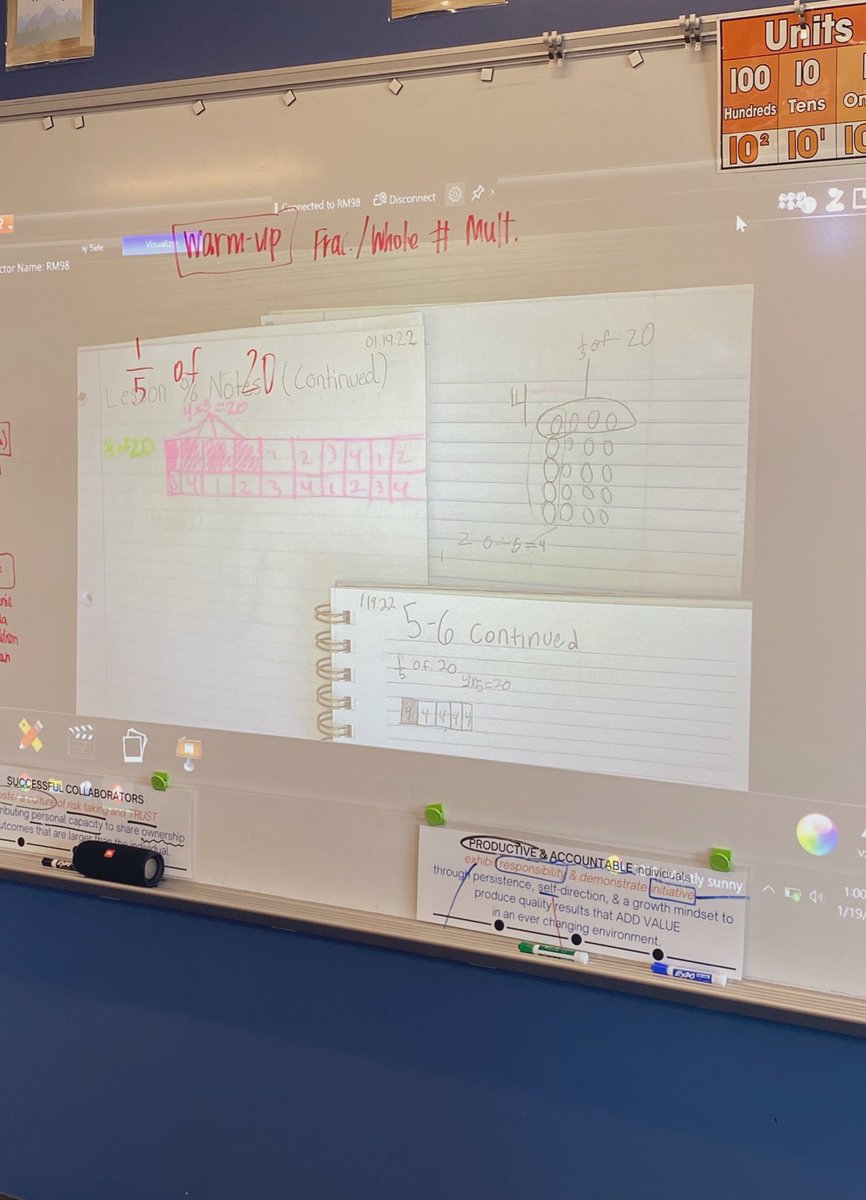 Units
100 10
Hundreds Tens
10² 10¹
Connected to RM98
Disconnect
Visualiz
ctor Name: RM98
Warm-up Frac./Whole # Mult.
1/5 of 20
01.19.22
(Continued)
4x5=20
1/5 of 20
4 1 2 3 4 1 2
3 4 1 2 3 4 1 2 3 4
1/5 of 20
4
0 0 0 0
0 0 0 0
0 0 0 0
0 0 0 0
0 0 0 0
20÷5=4
1.19.22
5-6 Continued
1/5 of 20
4x5=20
4 4 4 4 4
SUCCESSFUL COLLABORATORS
oster a culture of risk taking and TRUST
ributing personal capacity to share ownership
utcomes that are larger than the individual.
PRODUCTIVE & ACCOUNTABLE individuals
exhibit responsibility & demonstrate initiative
through persistence, self-direction, & a growth mindset to
produce quality results that ADD VALUE
in an ever changing environment.
sunny
1:00
1/19/
JBL
EXPO